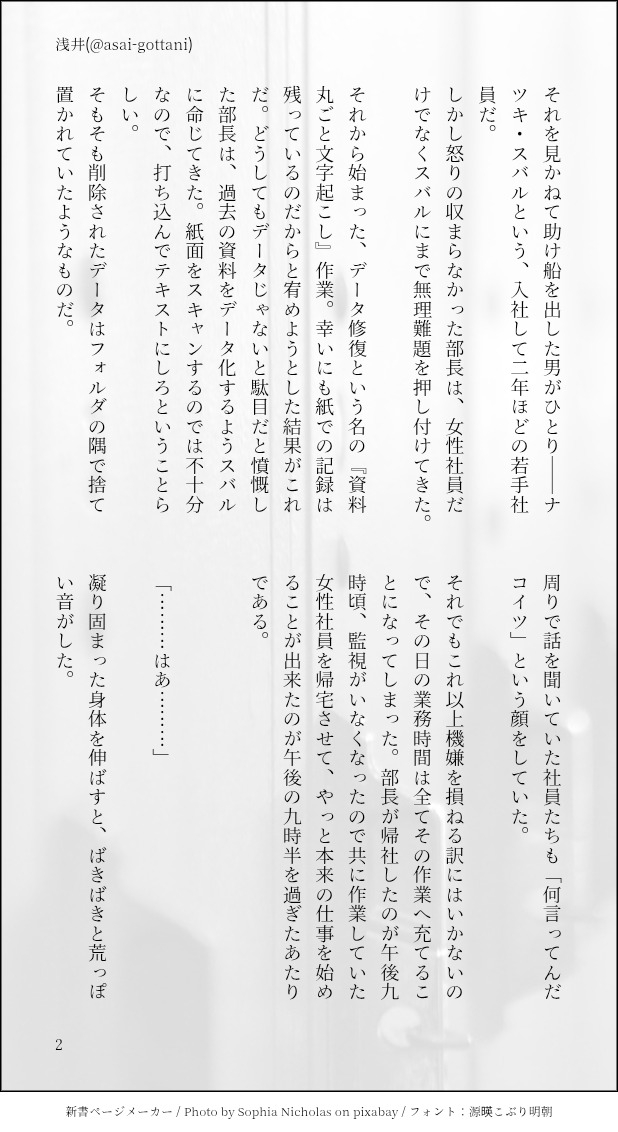 浅井(@asai-gottani)
それを見かねて助け船を出した男がひとり――ナ
ツキ・スバルという、入社して二年ほどの若手社
員だ。
しかし怒りの収まらなかった部長は、女性社員だ
けでなくスバルにまで無理難題を押し付けてきた。
それから始まった、データ修復という名の『資料
丸ごと文字起こし』作業。幸いにも紙での記録は
残っているのだからと宥めようとした結果がこれ
だ。どうしてもデータじゃないと駄目だと憤慨し
た部長は、過去の資料をデータ化するようスバル
に命じてきた。紙面をスキャンするのでは不十分
なので、打ち込んでテキストにしろということら
しい。
そもそも削除されたデータはフォルダの隅で捨て
置かれていたようなものだ。
周りで話を聞いていた社員たちも「何言ってんだ
コイツ」という顔をしていた。
それでもこれ以上機嫌を損ねる訳にはいかないの
で、その日の業務時間は全てその作業へ充てるこ
とになってしまった。部長が帰社したのが午後九
時頃、監視がいなくなったので共に作業していた
女性社員を帰宅させて、やっと本来の仕事を始め
ることが出来たのが午後の九時半を過ぎたあたり
である。
「………はあ………」
凝り固まった身体を伸ばすと、ばきばきと荒っぽ
い音がした。
2
新書ページメーカー / Photo by Sophia Nicholas on pixabay / フォント：源暎こぶり明朝